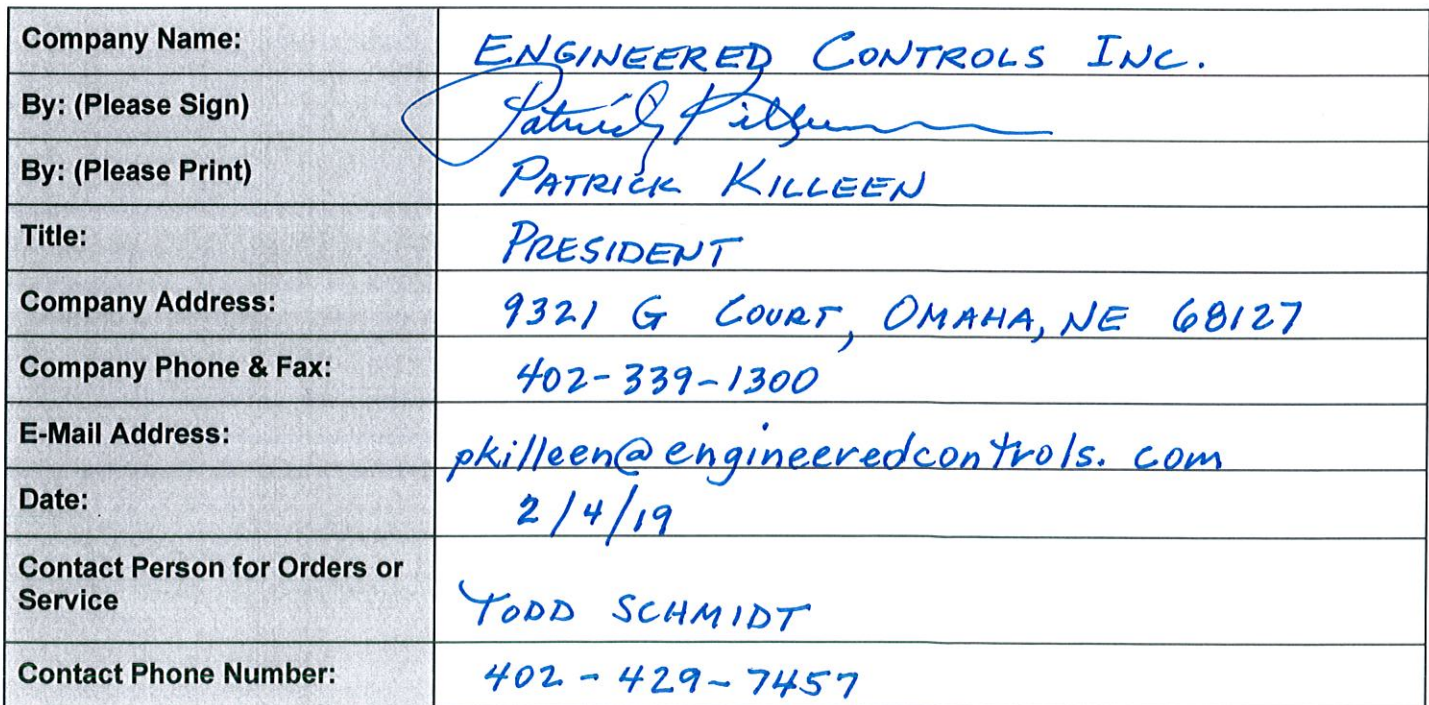 Company Name: ENGINEERED CONTROLS INC.
By: (Please Sign) Patrick Killeen
By: (Please Print) PATRICK KILLEEN
Title: PRESIDENT
Company Address: 9321 G COURT, OMAHA, NE 68127
Company Phone & Fax: 402-339-1300
E-Mail Address: pkilleen@engineeredcontrols.com
Date: 2/4/19
Contact Person for Orders or
Service TODD SCHMIDT
Contact Phone Number: 402-429-7457